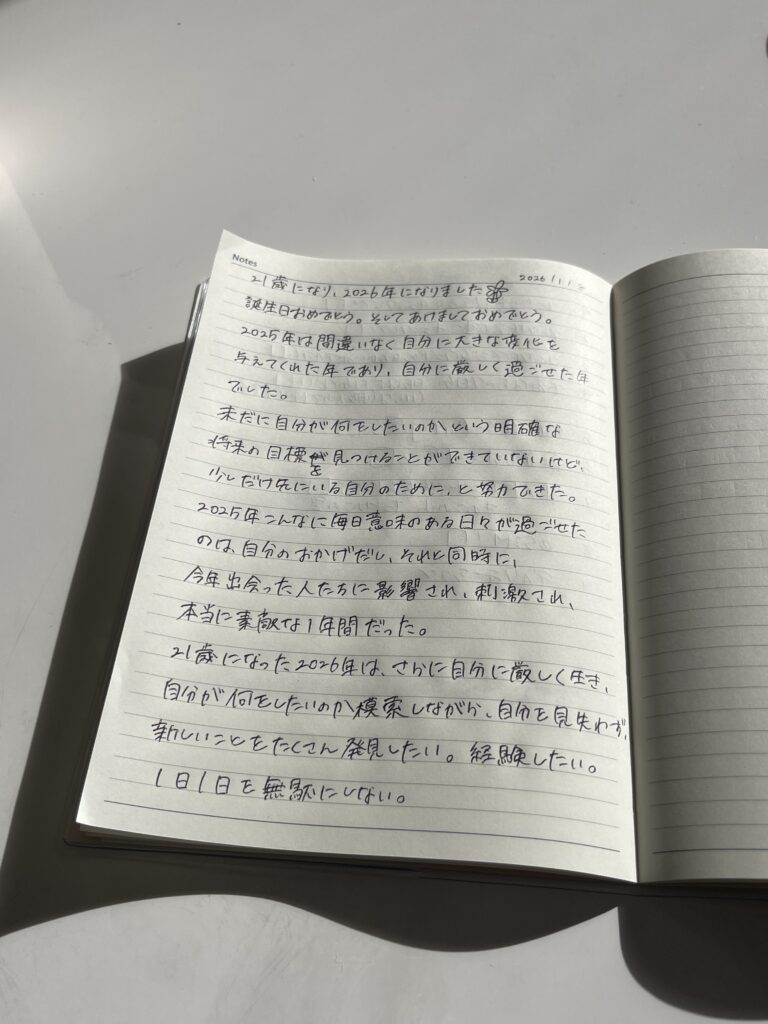 Notes
2026/1/1
21歳になり、2026年になりました
誕生日おめでとう。そしてあけましておめでとう。
2025年は間違いなく自分に大きな変化を
与えてくれた年であり、自分に厳しく過ごせた年
でした。
未だに自分が何をしたいのかという明確な
将来の目標を見つけることができていないけど、
少しだけ先にいる自分のために、と努力できた。
2025年こんなに毎日意味のある日々が過ごせた
のは、自分のおかげだし、それと同時に、
今年出会った人たちに影響され、刺激され、
本当に素敵な1年間だった。
21歳になった2026年は、さらに自分に厳しく生き、
自分が何をしたいのか模索しながら、自分を見失わず、
新しいことをたくさん発見したい。経験したい。
1日1日を無駄にしない。